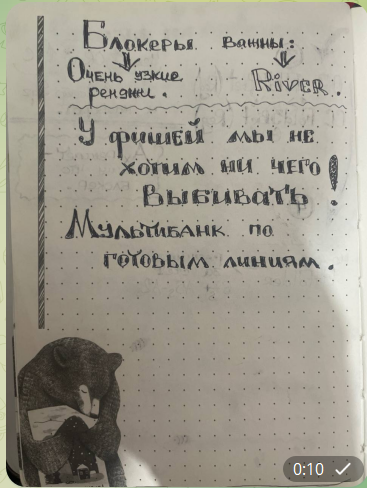 Блокеры важны:
Очень узкие
ренжи.
River.
У фишей мы не
хотим ни чего
выбивать!
Мультибанк по
готовым линиям.
0:10